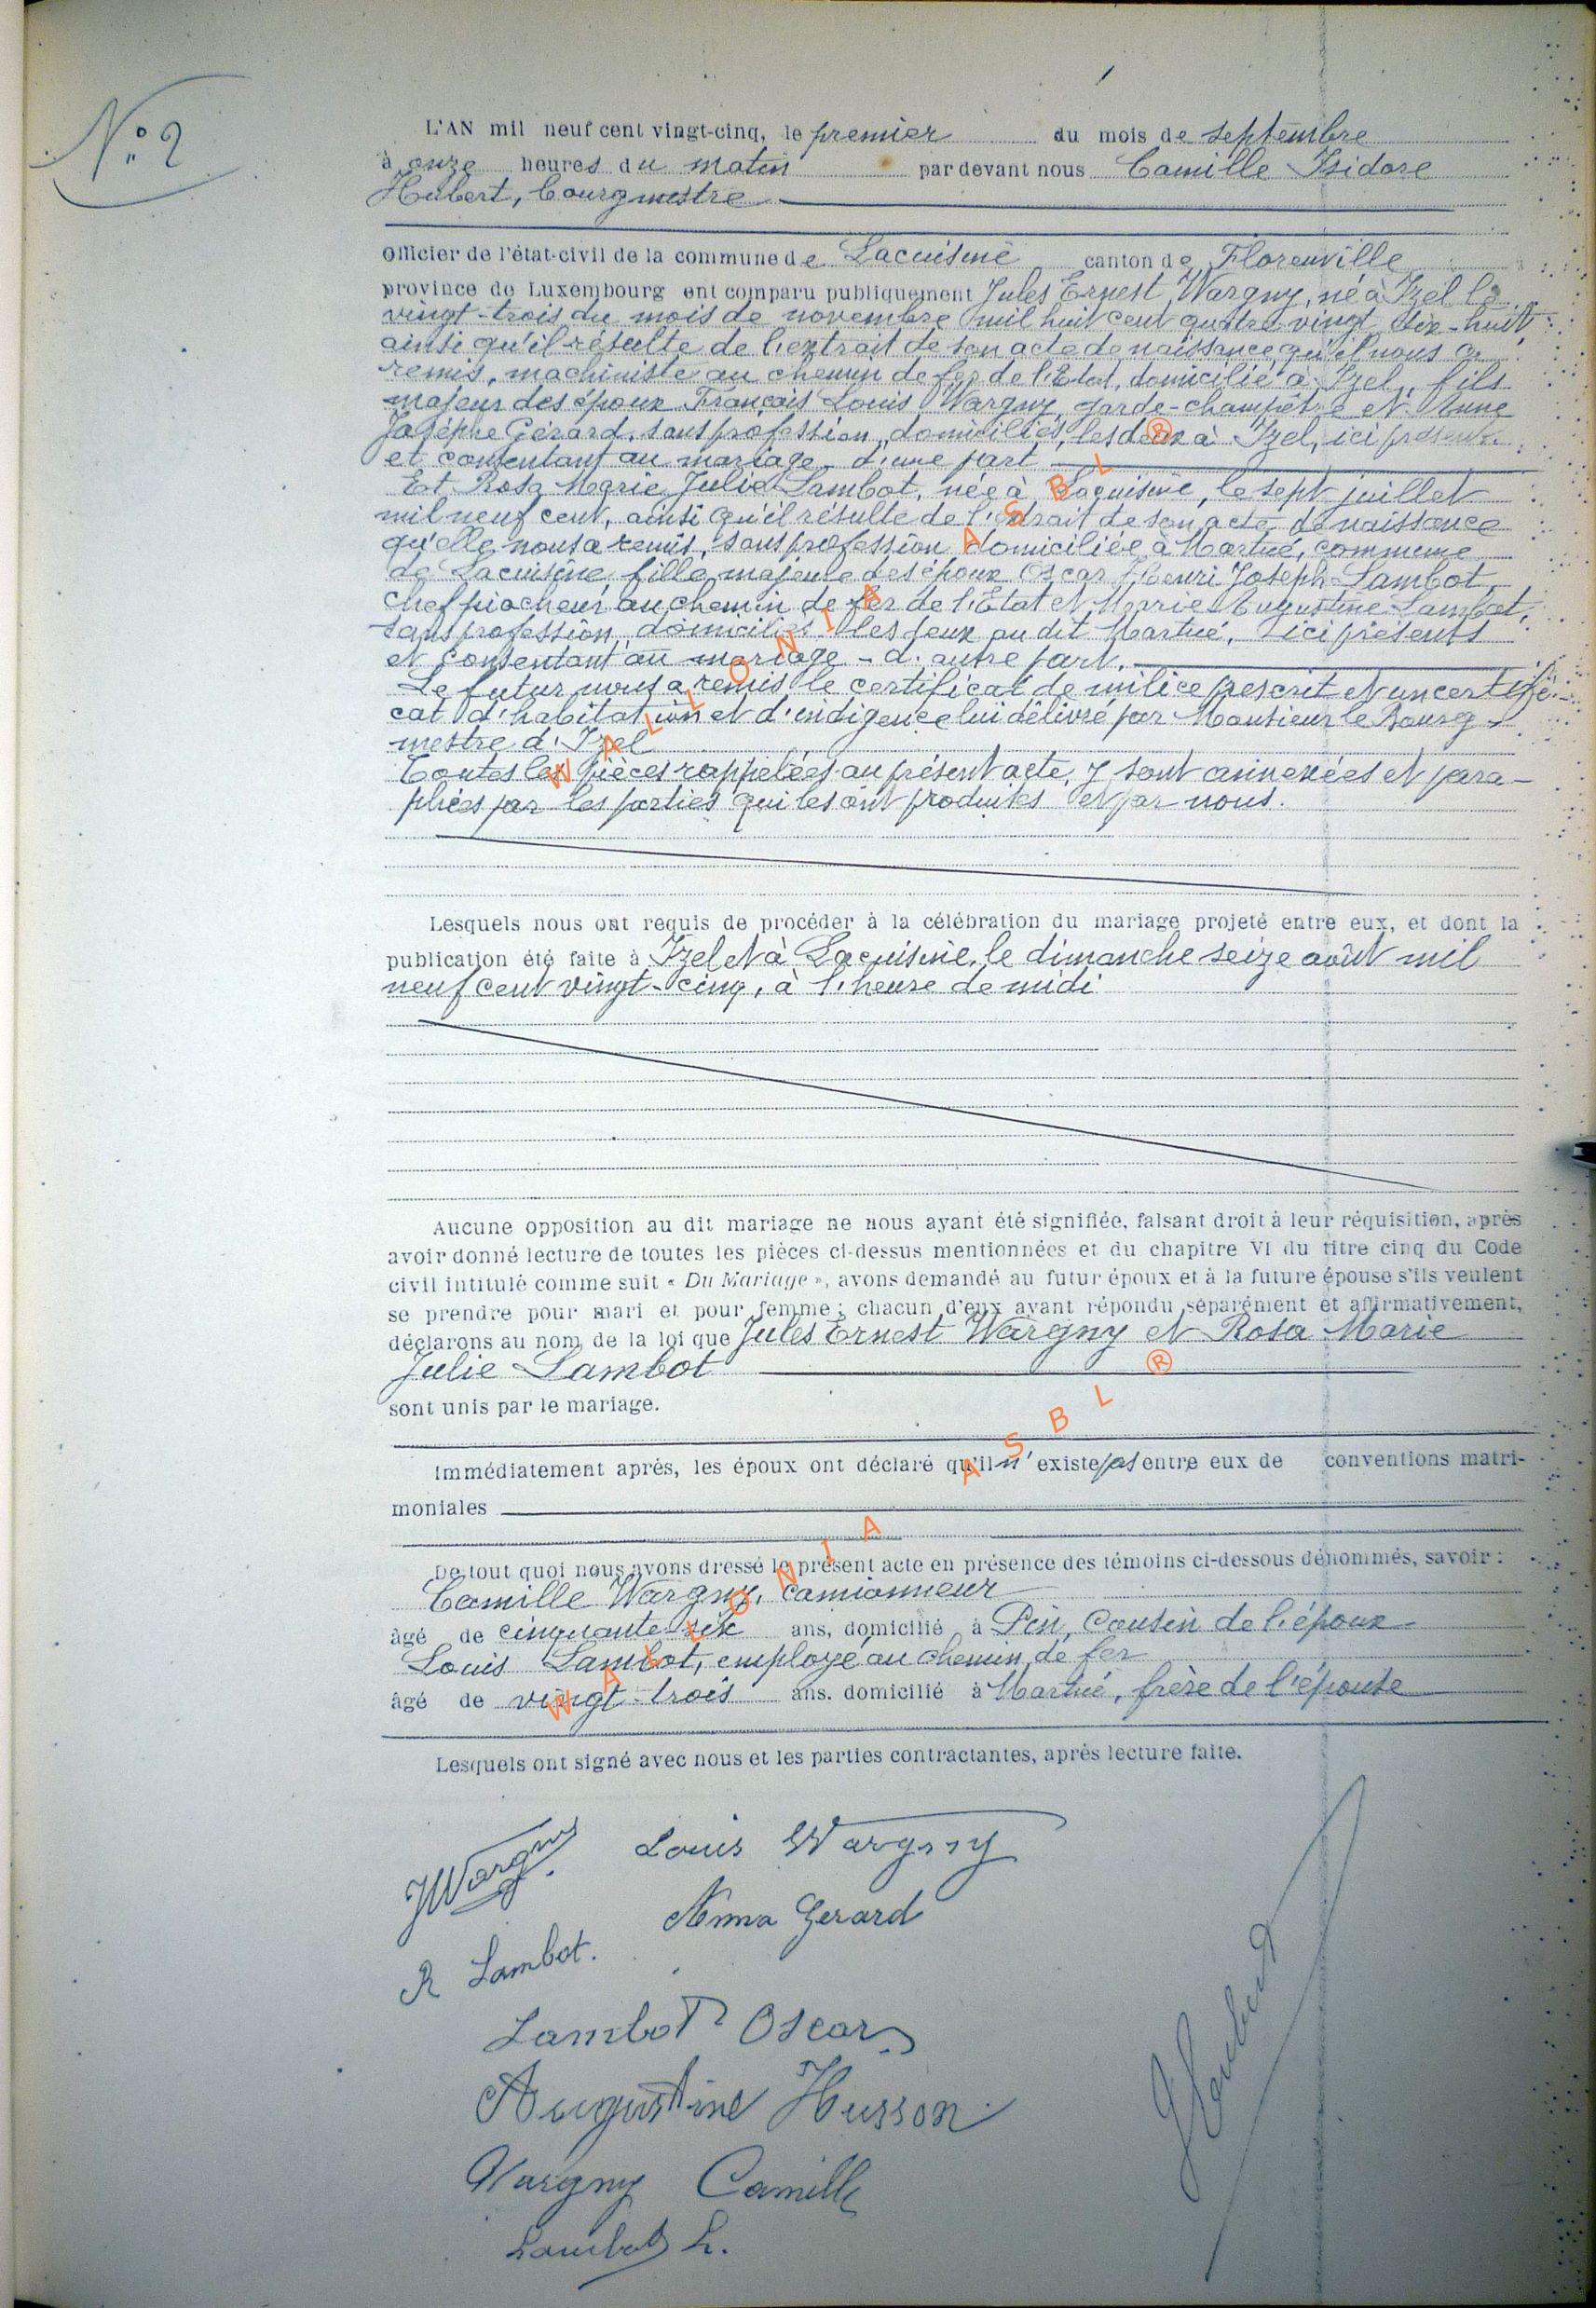 N° 2
L'AN mil neuf cent vingt-cinq, le premier du mois de septembre
à onze heures du matin par devant nous Camille Isidore
Hubert, bourgmestre
Officier de l'état-civil de la commune de Lacuisine canton de Florenville
province de Luxembourg ont comparu publiquement Jules Ernest Wargny, né à Izel le
vingt-trois du mois de novembre mil huit cent quatre vingt dix-huit,
ainsi qu'il résulte de l'extrait de son acte de naissance qu'il nous a
remis, machiniste au chemin de fer de l'Etat, domicilié à Izel, fils
majeur des époux François Louis Wargny, garde-champêtre et Anne
Josèphe Gérard, sans profession, domiciliés les deux à Izel, ici présents
et consentant au mariage - d'une part
Et Rosa Marie Julie Lambot, née à Lacuisine, le sept juillet
mil neuf cent, ainsi qu'il résulte de l'extrait de son acte de naissance
qu'elle nous a remis, sans profession domiciliée à Martué, commune
de Lacuisine, fille majeure des époux Oscar Henri Joseph Lambot,
chef piocheur au chemin de fer de l'Etat et Marie Augustine
sans profession, domiciliés les deux au dit Martué, ici présents
et consentant au mariage - d'autre part.
Le futur nous a remis le certificat de milice prescrit et un certifi-
cat d'habitation et d'indigence lui délivré par Monsieur le Bourg-
mestre d'Izel
Toutes les pièces rappelées au présent acte, y sont annexées et para-
phées par les parties qui les ont produites et par nous.
Lesquels nous ont requis de procéder à la célébration du mariage projeté entre eux, et dont la
publication été faite à Izel et à Lacuisine, le dimanche seize août mil
neuf cent vingt-cinq, à l'heure de midi
Aucune opposition au dit mariage ne nous ayant été signifiée, faisant droit à leur réquisition, après
avoir donné lecture de toutes les pièces ci-dessus mentionnées et du chapitre VI du titre cinq du Code
civil intitulé comme suit « Du Mariage », avons demandé au futur époux et à la future épouse s'ils veulent
se prendre pour mari et pour femme ; chacun d'eux ayant répondu séparément et affirmativement,
déclarons au nom de la loi que Jules Ernest Wargny et Rosa Marie
Julie Lambot
sont unis par le mariage.
Immédiatement après, les époux ont déclaré qu'il n'existe pas entre eux de conventions matri-
moniales
De tout quoi nous avons dressé le présent acte en présence des témoins ci-dessous dénommés, savoir :
Camille Wargny, camionneur
âgé de cinquante-six ans, domicilié à Pin, cousin de l'époux
Louis Lambot, employé au chemin de fer
âgé de vingt-trois ans. domicilié à Martué, frère de l'épouse
Lesquels ont signé avec nous et les parties contractantes, après lecture faite.
JWargny. Louis Wargny
Anna Gerard
R Lambot.
Lambot Oscar
Augustine Husson
Wargny Camille
Lambot L.
Hubert
WALLONIA ASBL ®
WALLONIA ASBL ®